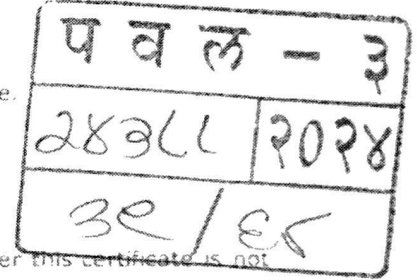 प व ल - ३
e.
२४३८८ २०२४
३९/६८
er this certificate is not